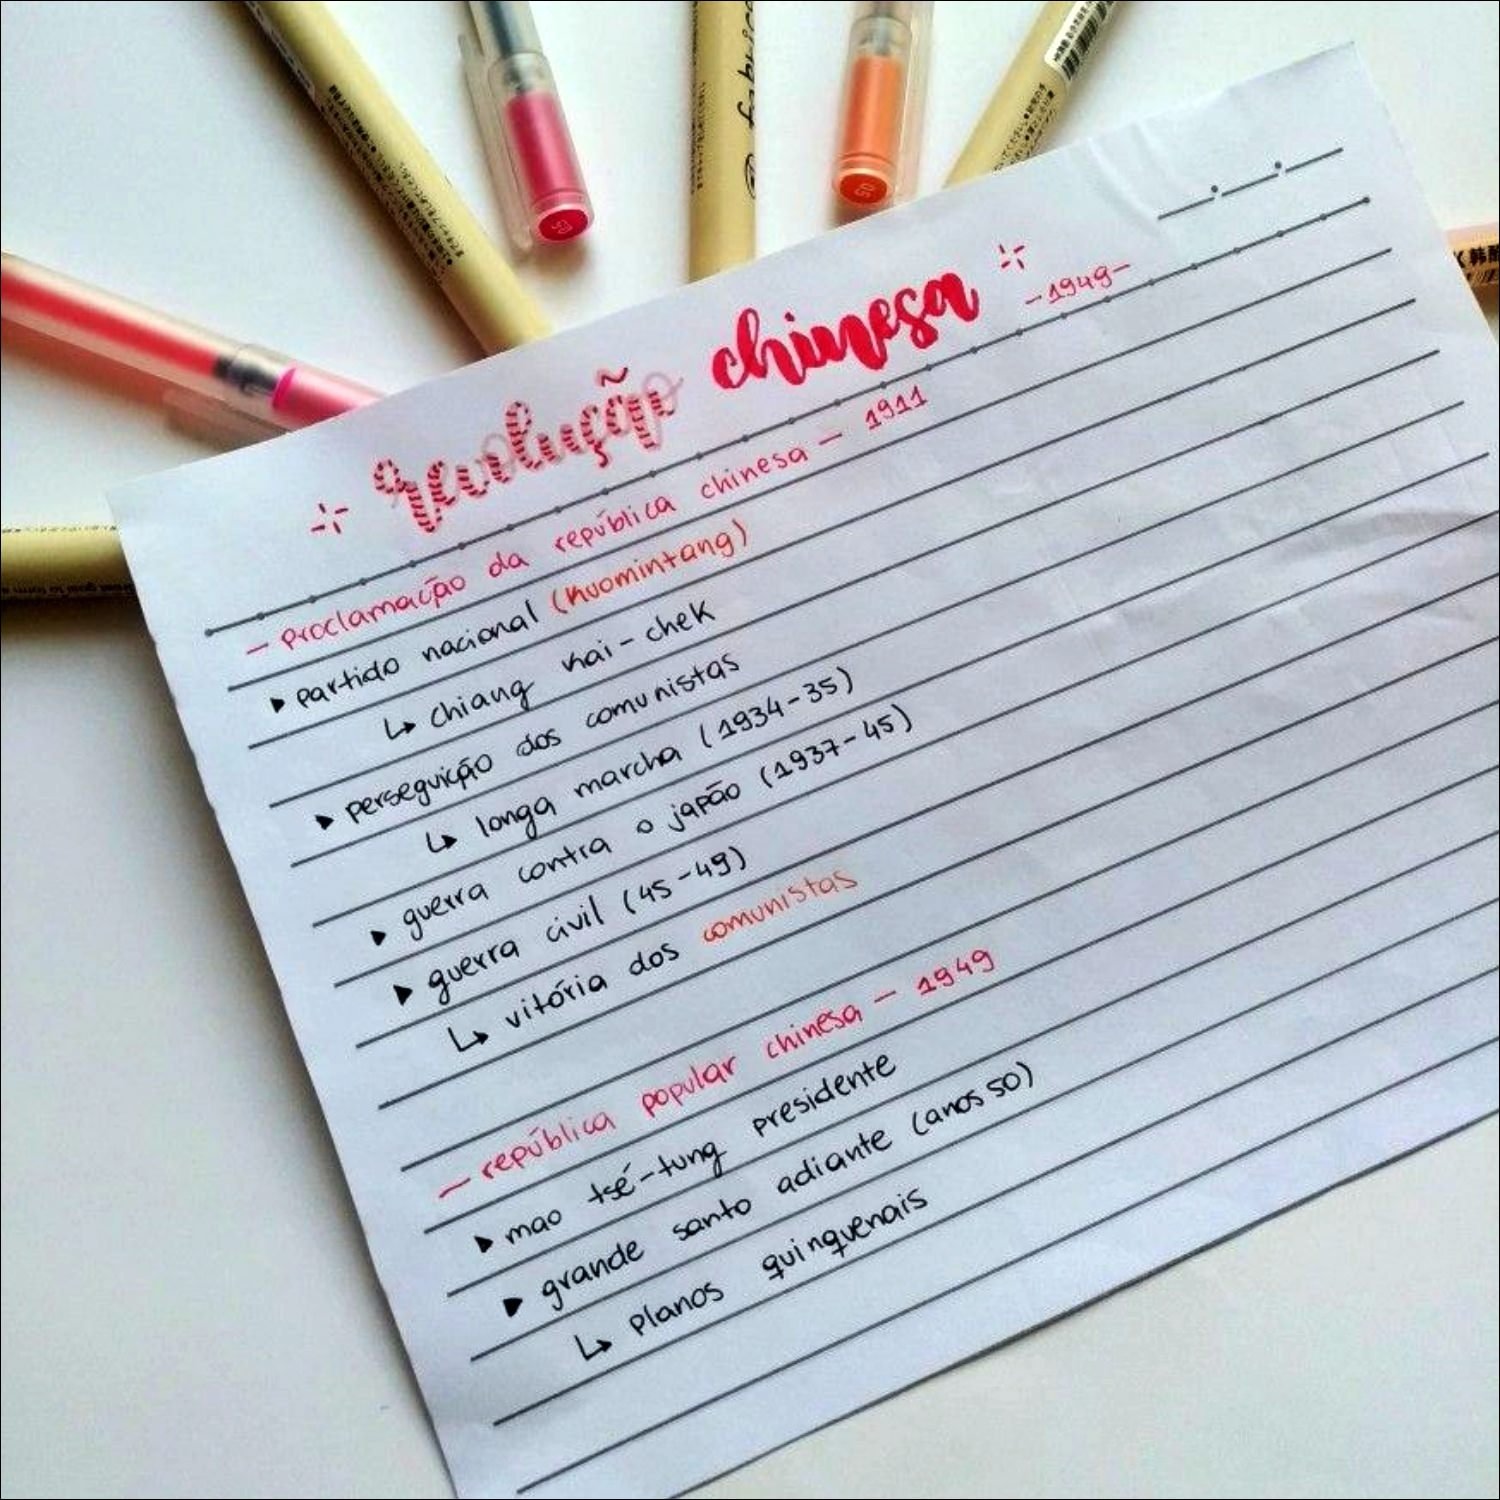 revolução chinesa
-1949-
- proclamação da república chinesa - 1911
▸ partido nacional (kuomintang)
↳ chiang kai-chek
▸ perseguição dos comunistas
↳ longa marcha (1934-35)
▸ guerra contra o japão (1937-45)
▸ guerra civil (45-49)
↳ vitória dos comunistas
- república popular chinesa - 1949
▸ mao tsé-tung presidente
▸ grande santo adiante (anos 50)
↳ planos quinquenais
05
05